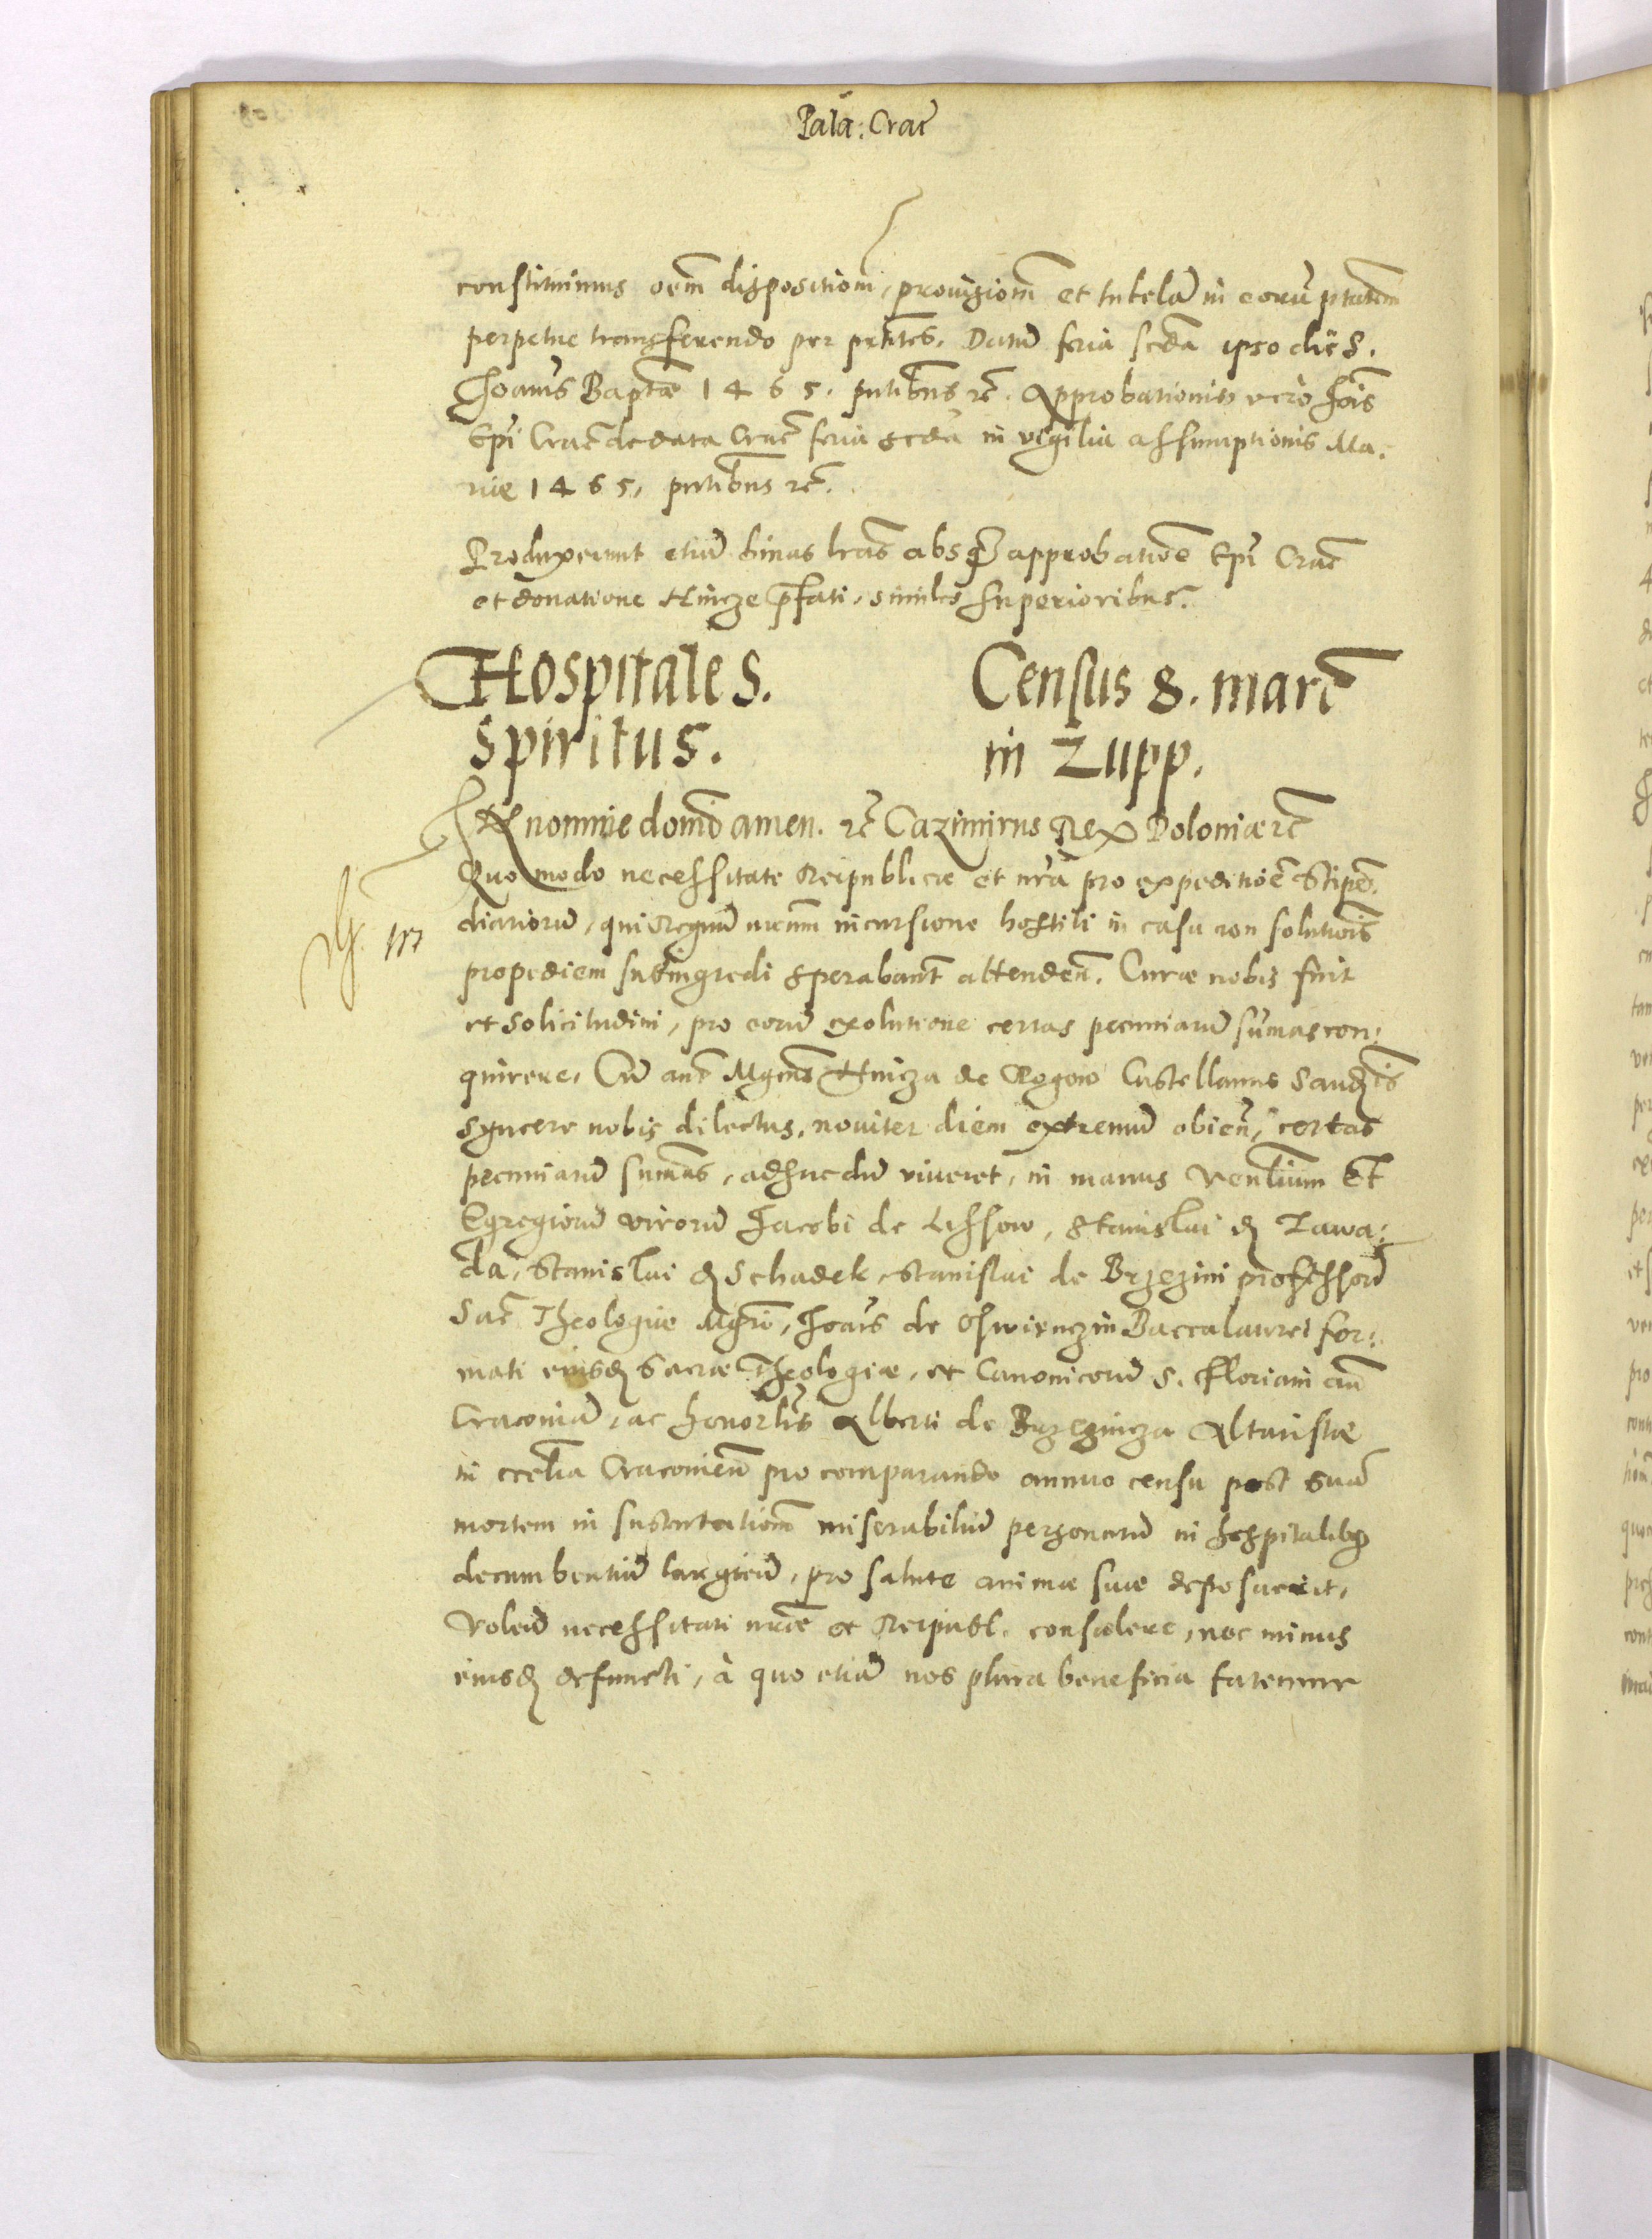 Pala: Crac̃
constituimus oẽm dispositiom̃, prouisiom̃ et tutelã in eorũ ptatem̃
perpetue transferendo per pñtes. Datũ feria scd̃a ipso die S.
Joanĩs Baptæ 1465. pñtibus rc̃. Approbationis vero Joĩs
Epĩ Crac̃ de data Crac̃ feria scd̃a in vigilia assumptionis Ma:
riæ 1465, pñtibus rc̃.
Produxerunt etiã binas lr̃as absq3 approbatiõe Epĩ Crac̃
et donatione Hincze p̃fati, similes superioribus.
Hospitale S.
Spiritus.
Census 8. marc̃
in Zupp.
IN nomine domĩ amen. rc̃ Cazimirus Rex Poloniæ rc̃
Quomodo necessitate Reipublicæ et nr̃a pro expeditiõe Stipẽ:
diariorũ, qui Regnũ nr̃um incursione hostili in casu non solutiõis
propediem subingredi sperabant attendeñ. Curæ nobis fuit
et solicitudini, pro eorũ exolutione certas pecuniarũ sum̃as con:
quirere. Cũ aut̃ Mgcũs Hincza de Rogow Castellanus Sandĩs
syncere nobis dilectus, nouiter diem extremũ obieñ, certas
pecuniarũ sum̃as, adhuc dũ viueret, in manus Veñlium Et
Egregiorũ virorũ Jacobi de Lissow, Stanislai d̃ Zawa:
da, Stanislai d̃ Schadek, Stanislai de Brzezini professorũ
Sac̃ Theologiæ Mgr̃i, Joañis de Oswienczin Baccalaurei for:
mati eiusd̃ Sacræ Theologiæ, et Canonicorũ S. Floriani añ
Cracouiã, ac honorlis̃ Alberti de Brzezincza Altaristæ
in eccl̃ia Cracouieñ pro comparando annuo censu post suã
mortem in sustentatiom̃ miserabiliũ personarũ in hospitalib9
decumbentiũ largieñ, pro salute animæ suæ deposuerit,
Voleñ necessitati nr̃æ et Reipubl. consulere, nec minus
eiusd̃ defuncti, à quo etiã nos plura beneficia fatemur
117